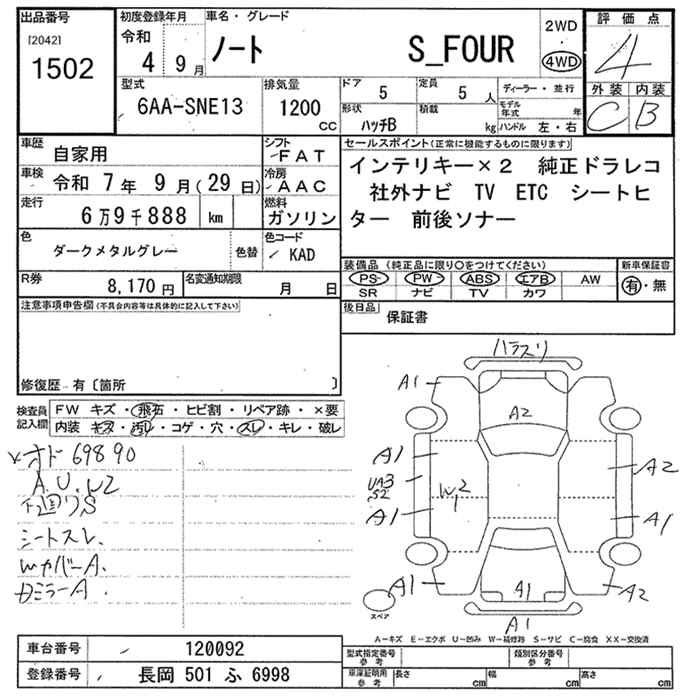 出品番号
[2042]
1502
初度登録年月
令和
4 9月
車名・グレード
ノート S_FOUR
2WD
4WD
評価点
4
外装 内装
C B
型式
6AA-SNE13
排気量
1200
CC
ドア
5
定員
5人
形状
ハッチB
積載
kg
ディーラー・並行
モデル年式 年
ハンドル 左・右
車歴
自家用
シフト
FAT
車検
令和 7年 9月(29日)
冷房
AAC
走行
6万9千888 km
燃料
ガソリン
色
ダークメタルグレー
色替
色コード
KAD
R券
8,170円
名変通知期限
月 日
セールスポイント(正常に機能するものに限ります)
インテリキー×2 純正ドラレコ
社外ナビ TV ETC シートヒ
ター 前後ソナー
装備品(純正品に限り〇をつけてください)
PS PW ABS エアB AW
SR ナビ TV カワ
新車保証書
有・無
後日品
保証書
注意事項申告欄(不具合内容等は具体的に記入して下さい)
修復歴 有〔箇所 〕
検査員
記入欄
FW キズ・飛石・ヒビ割・リペア跡・×要
内装 キズ・汚レ・コゲ・穴・スレ・キレ・破レ
オド 69890
A.U.W2
下廻りS
シートスレ.
WカバーA.
DミラーA.
ハラスリ
A1
A2
A1
UA3
S2
W2
1
A1
A2
A1
A1
A1
A2
A1
スペア
A-キズ E-エクボ U-凹み W-補修跡 S-サビ C-腐食 XX-交換済
車台番号
120092
登録番号
長岡 501 ふ 6998
型式指定番号
参考
類別区分番号
参考
車庫証明用
参考
長さ cm
幅 cm
高さ cm